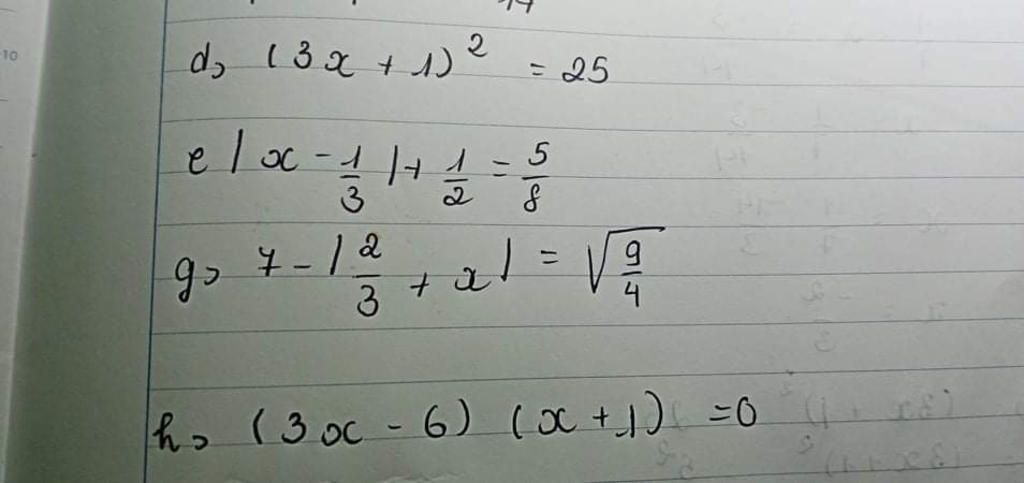 d, (3x + 1)² = 25
e | x - 1/3 | + 1/2 = 5/8
g, 7 - | 2/3 + x | = √(9/4)
h, (3x - 6) (x + 1) = 0